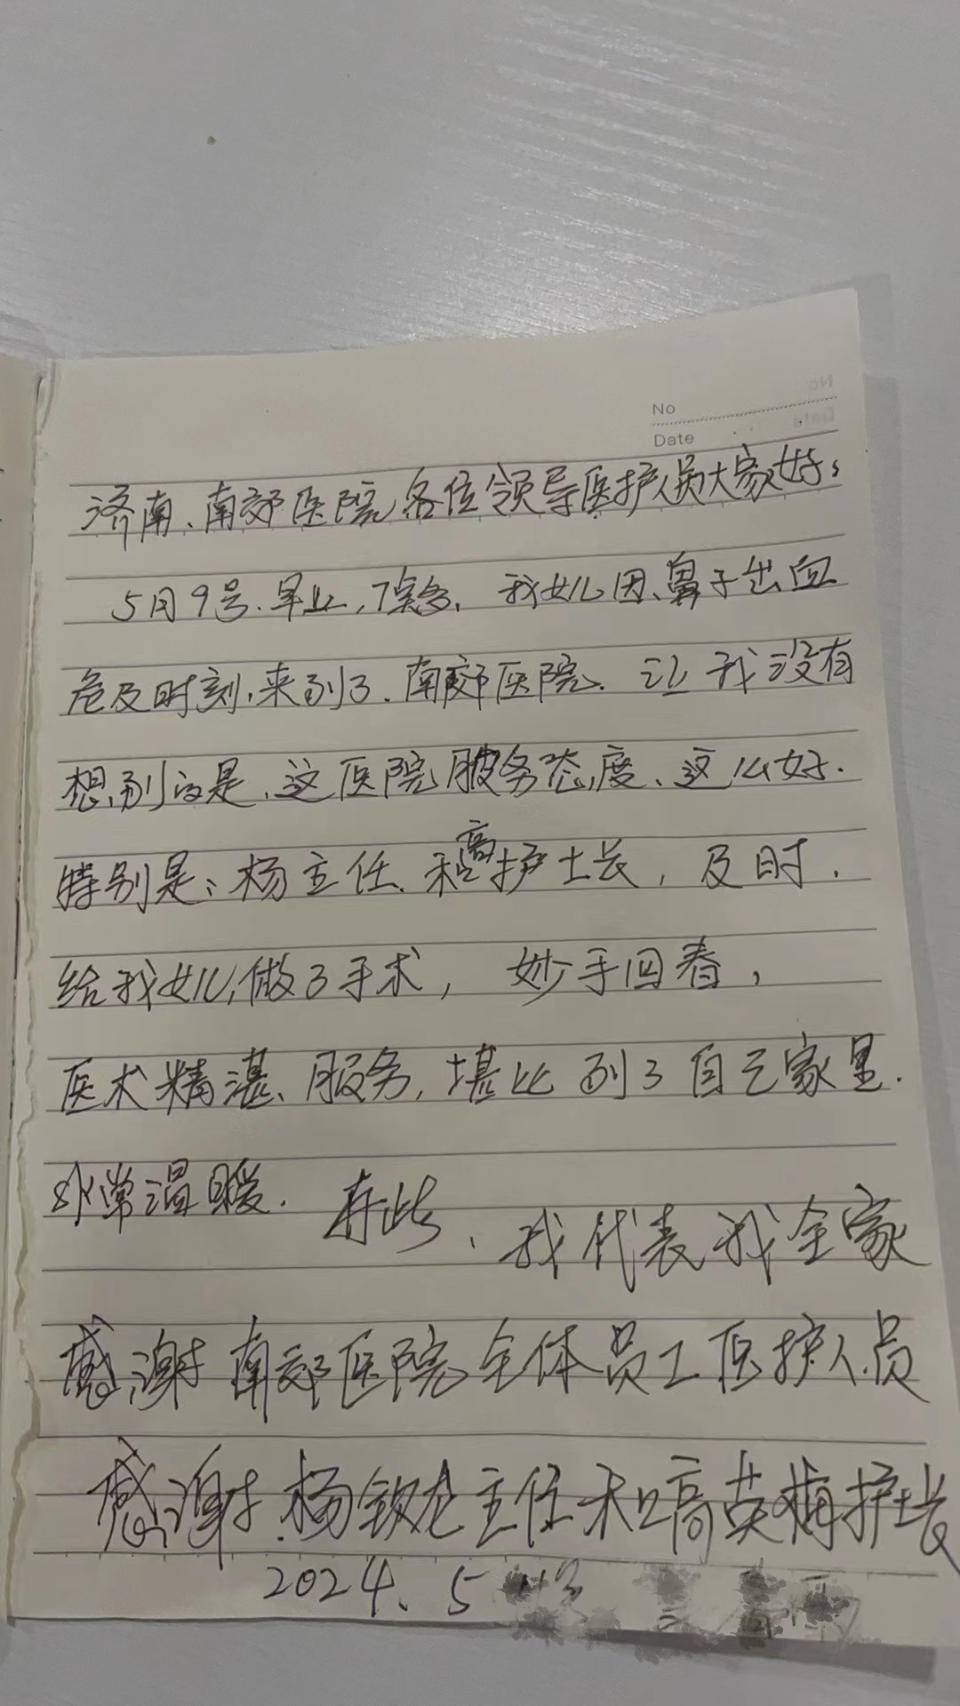 No
Date
济南、南郊医院各位领导医护人员大家好:
5月9号.早上,7点多、我女儿因、鼻子出血
危及时刻,来到了.南郊医院.让我没有
想到的是、这医院服务态度、这么好.
特别是:杨主任.和高护士长,及时.
给我女儿,做了手术,妙手回春,
医术精湛、服务,堪比到了自己家里.
非常温暖.在此、我代表我全家
感谢南郊医院全体员工医护人员
感谢.杨钦龙主任和高英梅护士长
2024.5